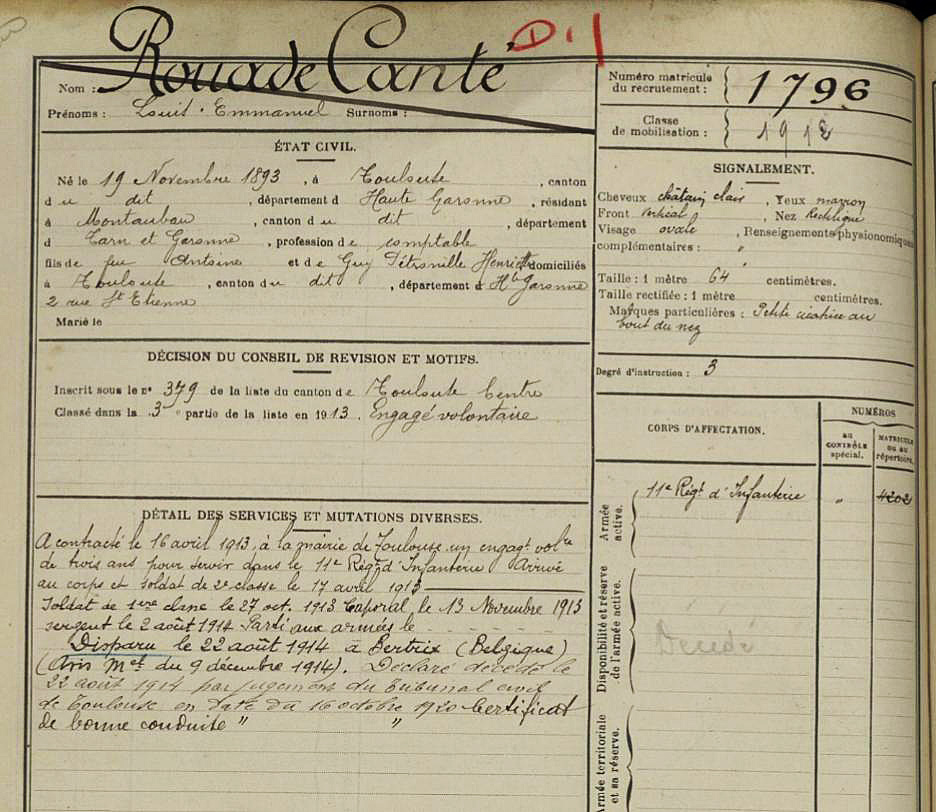 Rouade Canté
D.
Nom :
Prénoms : Louis Emmanuel Surnoms :
Numéro matricule du recrutement : 1796
Classe de mobilisation : 1912
ÉTAT CIVIL.
Né le 19 Novembre 1893, à Toulouse, canton
du dit, département d Haute Garonne, résidant
à Montauban, canton du dit, département
d Tarn et Garonne, profession de comptable
fils de feu Antoine et de Guy Pétronille Henriette domiciliés
à Toulouse, canton du dit, département d Hte Garonne
2 rue St Etienne
Marié le
SIGNALEMENT.
Cheveux châtain clair, Yeux marron
Front vertical, Nez Rectiligne
Visage ovale, Renseignements physionomiques
complémentaires : "
Taille : 1 mètre 64 centimètres.
Taille rectifiée : 1 mètre centimètres.
Marques particulières : Petite cicatrice au
bout du nez
Degré d'instruction : 3
DÉCISION DU CONSEIL DE REVISION ET MOTIFS.
Inscrit sous le n° 379 de la liste du canton de Toulouse Centre
Classé dans la 3e partie de la liste en 1913. Engagé volontaire
CORPS D'AFFECTATION.
NUMÉROS
AU CONTRÔLE spécial.
MATRICULE OU AU répertoire.
Armée active.
11e Régt d'Infanterie " 4202
Disponibilité et réserve de l'armée active.
Décédé
Armée territoriale et sa réserve.
DÉTAIL DES SERVICES ET MUTATIONS DIVERSES.
A contracté le 16 avril 1913, à la mairie de Toulouse un engagt volre
de trois ans pour servir dans le 11e Régt d'Infanterie Arrivé
au corps et soldat de 2e classe le 17 avril 1913
Soldat de 1ere classe le 27 oct. 1913 Caporal le 13 Novembre 1913
sergent le 2 août 1914 Parti aux armées le
Disparu le 22 août 1914 à Bertrix (Belgique)
(Avis Mel du 9 décembre 1914). Déclaré décédé le
22 août 1914 par jugement du Tribunal civil
de Toulouse en date du 16 octobre 1920 Certificat
de bonne conduite " "